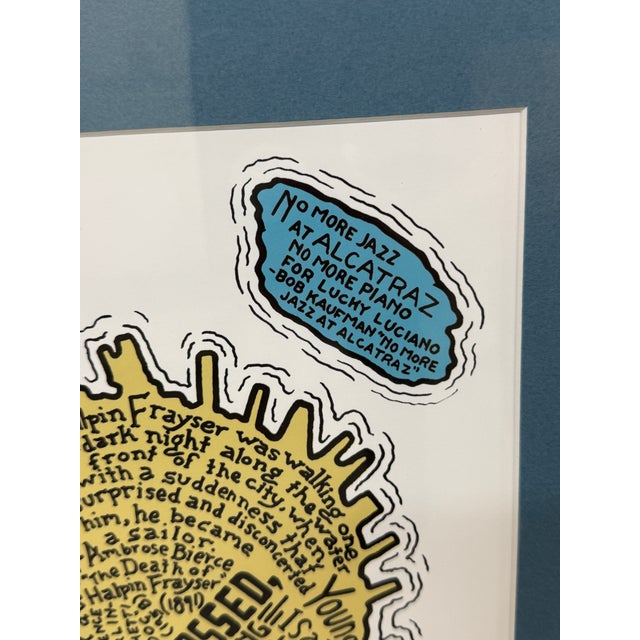 No MORE JAZZ
AT ALCATRAZ
NO MORE PIANO
FOR LUCKY LUCIANO
-BOB KAUFMAN "NO MORE
JAZZ AT ALCATRAZ"
Frayser was walking one
dark night along the water
front of the city, when
with a suddenness that
surprised and disconcerted
him, he became
a sailor.
-Ambrose Bierce
"The Death of
Halpin Frayser"
(1891)